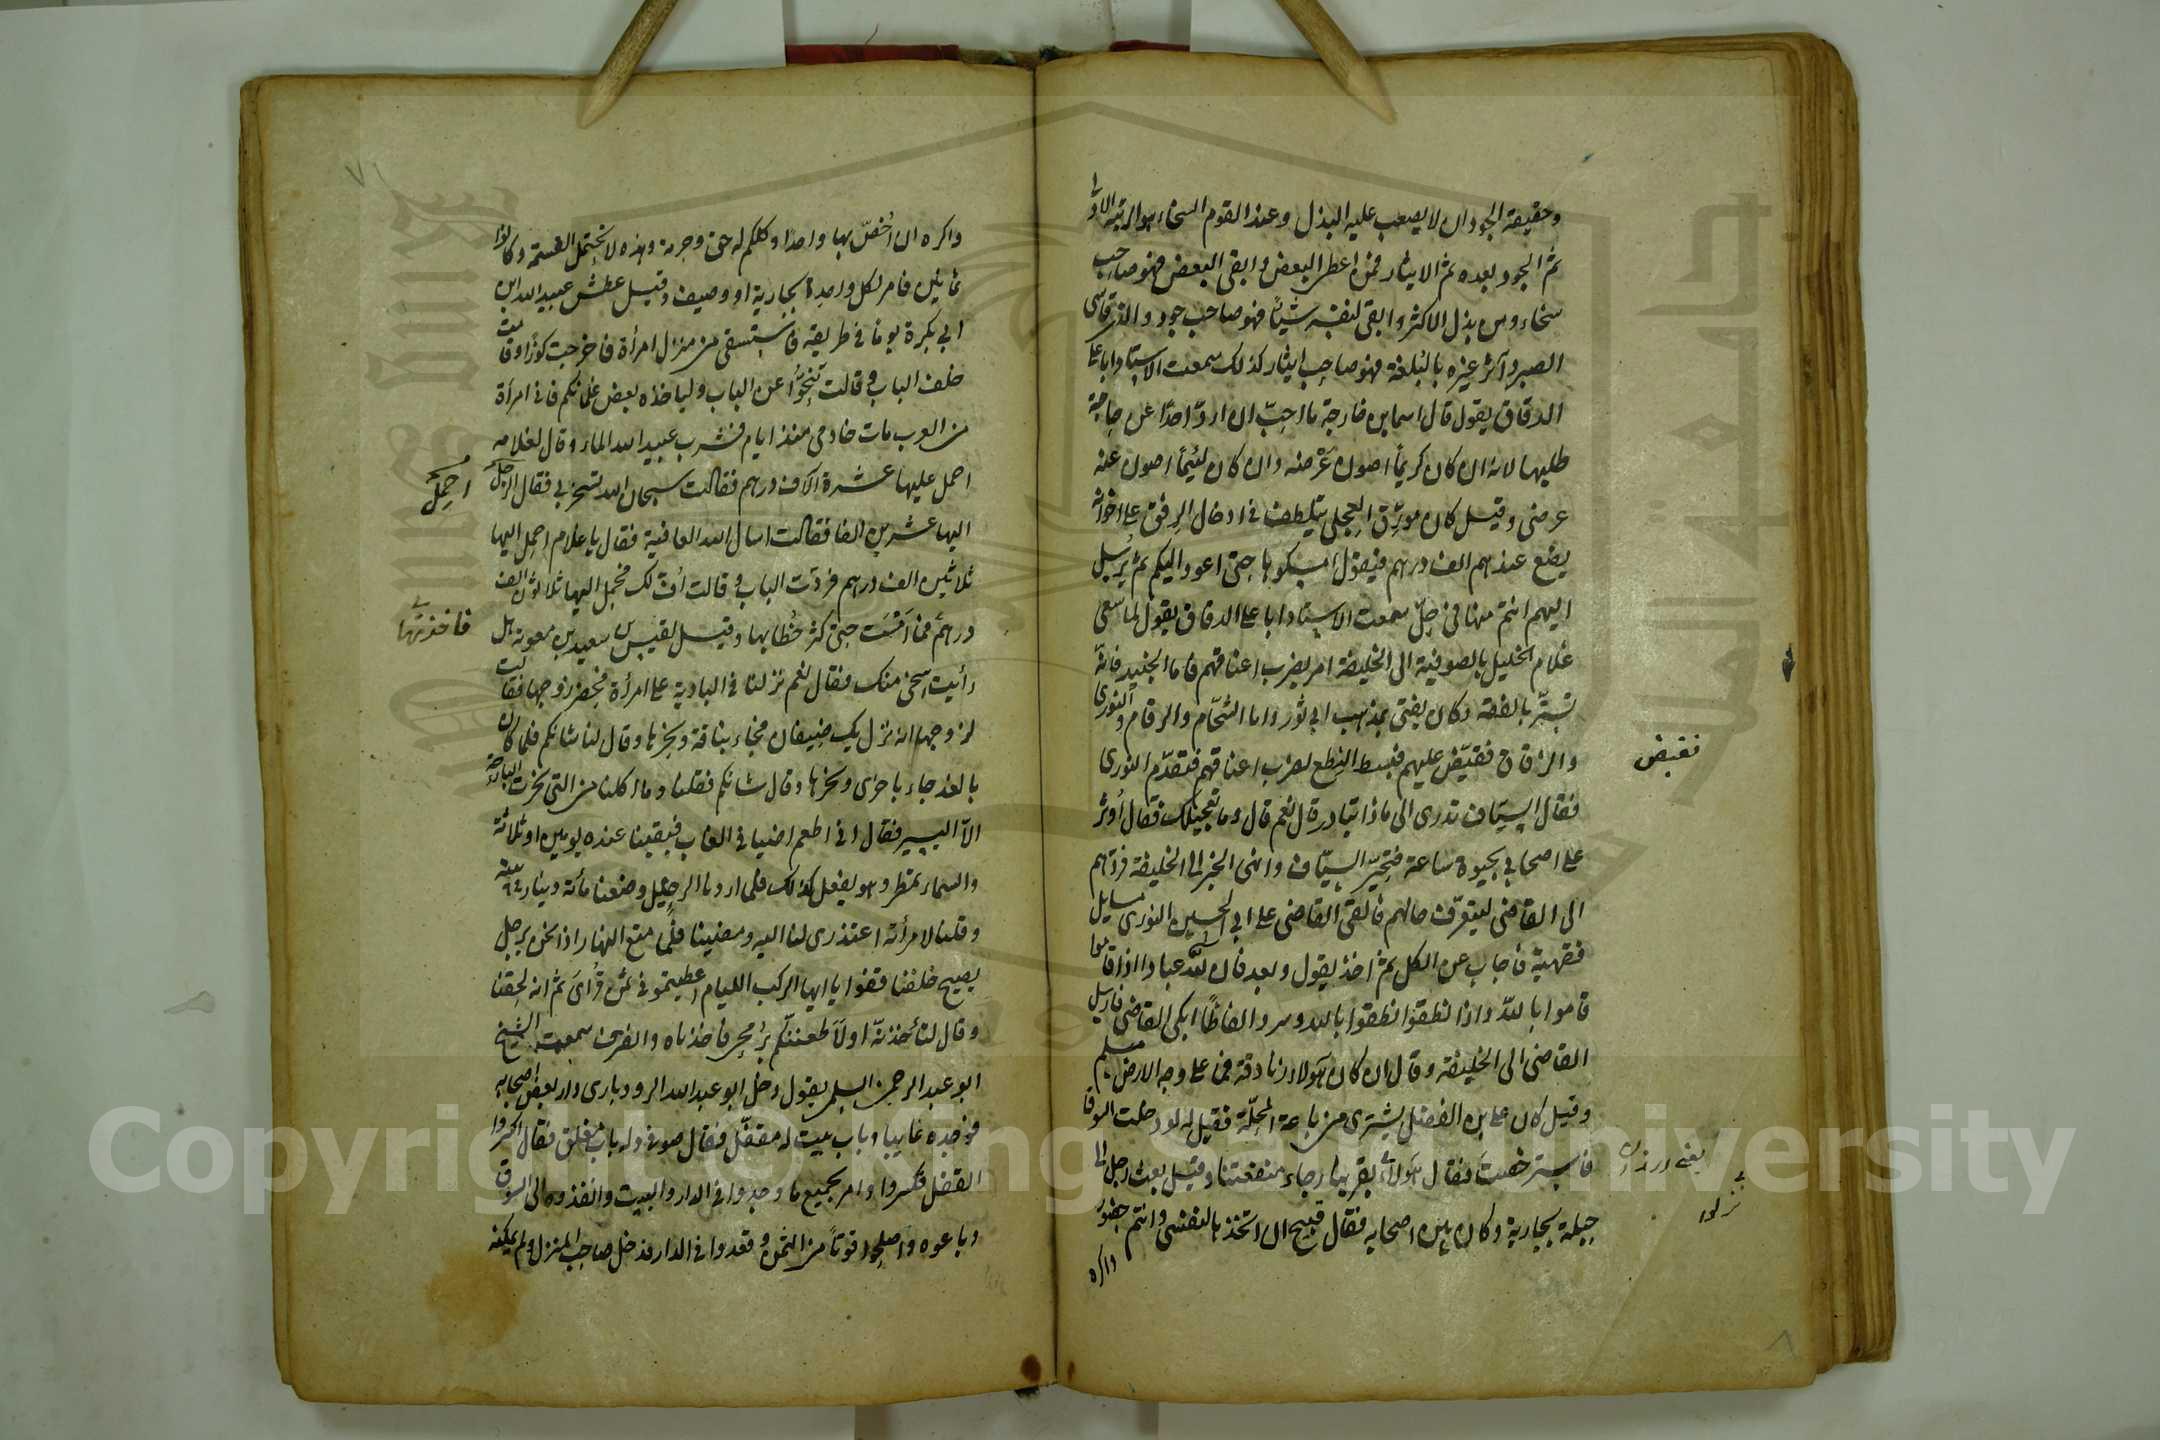 وحقيقة الجود ان لا يصعب عليه البذل وعند القوم السخاء هو الرتبة الاولى
ثم الجود بعده ثم الايثار فمن اعطى البعض وابقى البعض فهو صاحب
سخاء ومن بذل الاكثر وابقى لنفسه شيئاً فهو صاحب جود والذى قاسى
الضر وآثر غيره بالبلغة فهو صاحب ايثار كذلك سمعت الاستاد ابا على
الدقاق يقول قال اسما بن خارجة ما احبّ ان اردّ احدًا عن حاجة
طلبها لانه ان كان كريمًا اصون عرضه وان كان لئيمًا اصون عنه
عرضى وقيل كان مورّق العجلى يتلطف فى ادخال الرفق على اخوانه
يضع عندهم الف درهم فيقول امسكوها حتى اعود اليكم ثم يرسل
اليهم انتم منها فى حلّ سمعت الاستاد ابا على الدقاق يقول لما سعى
غلام الخليل بالصوفية الى الخليفة امر بضرب اعناقهم فاما الجنيد فانّه
تستّر بالفقه وكان يفتى بمذهب ابى ثور واما الشحّام والرقام والنورى
والزقاق فقبّض عليهم فبسط النطع لضرب اعناقهم فتقدّم النورى
فقبض
فقال السيّاف تدرى الى ماذا تبادر قال نعم قال وما تعجيلك فقال أوثر
على اصحابى بحيوة ساعة فتحيّر السيّاف وانهى الخبر الى الخليفة فردّهم
الى القاضى ليتعرّف حالهم فالقى القاضى على ابى الحسين النورى مسايل
فقهية فاجاب عن الكل ثم اخذ يقول وبعد فان للّه عبادا اذا قاموا
قاموا باللّه واذا نطقوا نطقوا بالله وسرد الفاظًا ابكى القاضى فارسل
القاضى الى الخليفة وقال ان كان هؤلاء زنادقة فما على وجه الارض مسلم
وقيل كان على بن الفضل يشترى من باعة المحلّة فقيل له لو دخلت السوق
فاسترخصت فقال هؤلاء بقربنا رجاء منفعتنا وقيل بعث رجل الى
نزلوا
جبلة بجارية وكان بين اصحابه فقال قبيح ان اتخذها لنفسى وانتم حضور
واكره
واكره ان أخصّ بها واحدا وكلكم له حق وحرمة وهذه لا تحتمل القسمة وكانوا
ثمانين فامر لكل واحد بجارية او وصيف وقيل عطش عبيد الله ابن
ابى بكرة يوما فى طريقه فاستسقى من منزل امرأة فاخرجت كوزا وقامت
خلف الباب وقالت تنحّوا عن الباب ولياخذه بعض غلمانكم فانى امرأة
من العرب مات خادمى منذ ايام فشرب عبيد الله الماء وقال لغلامه
احمل عليها عشرة آلاف درهم فقالت سبحان الله تسخر بى فقال احمل
احمِل
اليها عشرين الفا فقالت اسال الله العافية فقال يا غلام احمل اليها
ثلاثين الف درهم فردّت الباب وقالت أف لك فحمل اليها ثلاثون الف
فاخذتها
درهم فما امست حتى كثر خطّابها وقيل لقيس بن سعيد بن معوية هل
رأيت اسخى منك فقال نعم نزلنا فى البادية على امرأة فحضر زوجها فقالت
لزوجها انه نزل بك ضيفان فجاء بناقة ونحرها وقال لنا شانكم فلما كان
بالغد جاء باخرى ونحرها وقال شانكم فقلنا وما اكلنا من التى نحرت البارحة
الاّ اليسير فقال انى لا اطعم اضيافى الغاب فبقينا عنده يومين او ثلاثة
والسماء تمطر وهو يفعل كذلك فلما اردنا الرحيل وضعنا مأئة دينار فى بيته
وقلنا لامرأته اعتذرى لنا اليه ومضينا فلمّا متع النهار اذا نحن برجل
يصيح خلفنا قفوا يا ايها الركب الليام اعطيتمونى ثمن قراىَ ثم انه لحقنا
وقال لتأخذنّه او لاطعننّكم برمحى فاخذناه وانصرف سمعت الشيخ
ابو عبد الرحمن السلمى يقول دخل ابو عبد الله الرودبارى دار بعض اصحابه
فوجده غايبا وباب بيت له مقفّل فقال صوفى وله باب مغلق فقال اكسروا
القفل فكسروا وامر بجميع ما وجدوا فى الدار والبيت وانفذوه الى السوق
وباعوه واصلحوا قوتاً من الثمن وقعدوا فى الدار فدخل صاحب المنزل ولم يمكنه
Copyright © King Saud University